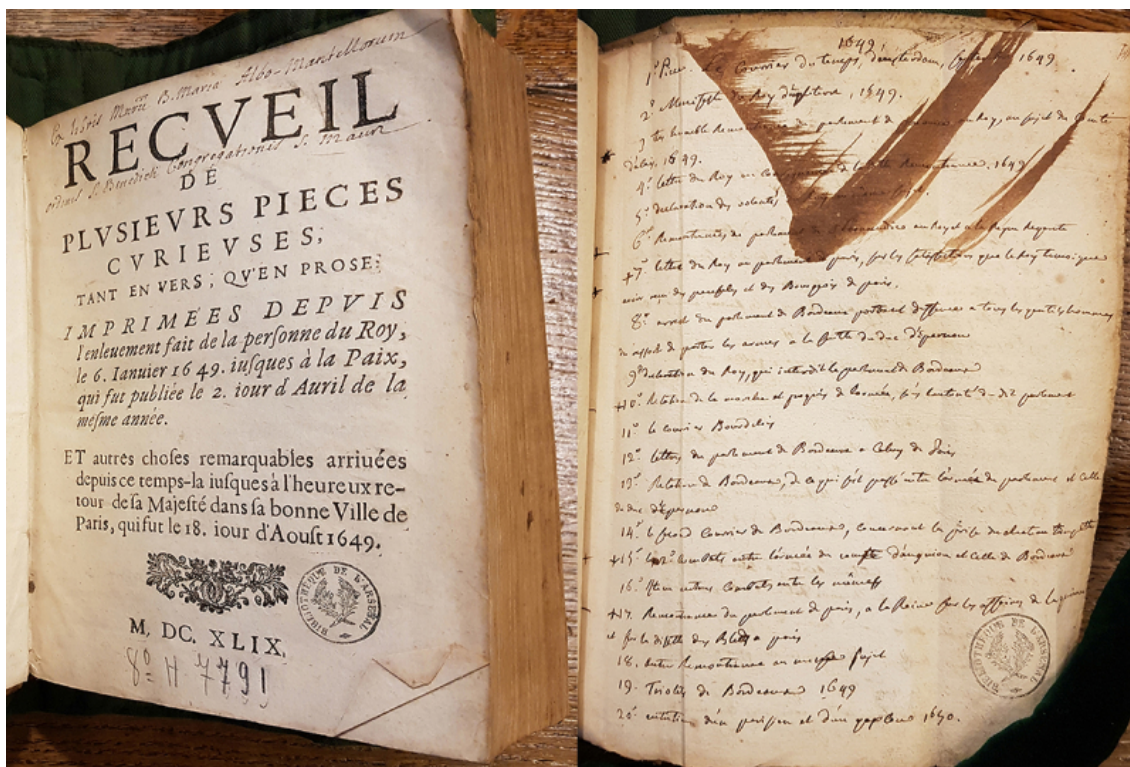 Ex libris Mon.rii B. Maria Albo-Mantellorum
RECVEIL
ordinis S. Benedicti Congregationis S. Mauri
DE
PLVSIEVRS PIECES
CVRIEVSES,
TANT EN VERS, QV'EN PROSE:
IMPRIMÉES DEPVIS
l'enleuement fait de la personne du Roy,
le 6. Ianuier 1649. iusques à la Paix,
qui fut publiée le 2. iour d'Auril de la
mesme année.
ET autres choses remarquables arriuées
depuis ce temps-la iusques à l'heureux re-
tour de sa Majesté dans sa bonne Ville de
Paris, qui fut le 18. iour d'Aoust 1649.
BIBLIOTHÈQUE DE L'ARSENAL
M. DC. XLIX.
8° H 7791
1649
1° Le Courrier du temps, 1649.
2° Manifeste du Roy 1649.
3 tres humble Remontrance du parlement de au Roy, au sujet du Comte
d'alais. 1649.
4° lettre du Roy en de Remontrance. 1649
5° declaration des
6° Remontrances du parlement de au Roy et a la Reyne Regente
+7° lettre du Roy au parlement de paris, sur la satisfaction que le Roy
des et des Bourgeois de paris.
8° arrest du parlement de Bordeaux portant deffences a tous les gentilshommes
du de porter les armes a la du duc d'épernon
9° declaration du Roy, qui interdit le parlement de Bordeaux
+10° Relation de la marche et progrès de l'armée, du dit parlement
11° le courrier Bourdelois
12° lettre du parlement de Bordeaux a
13° Relation de Bordeaux, de ce qui s'est passé entre l'armée du parlement et celle
du duc d'épernon
14° le second Courrier de Bordeaux, concernant la
+15° combats entre l'armée du et celle de Bordeaux
16° autres Combats entre les mêmes
+17. Remontrances du parlement de paris, a la Reine sur les affaires de la
et sur la disette des Bleds a paris
18. autre Remontrance au mesme sujet
19. Triolets de Bordeaux 1649
20° d'un parisien et d'un 1650.
BIBLIOTHÈQUE DE L'ARSENAL